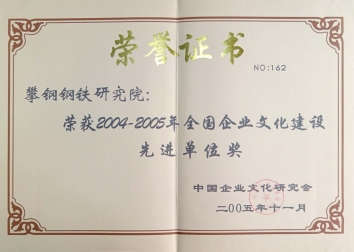 荣誉证书
NO:162
攀钢钢铁研究院:
荣获2004-2005年全国企业文化建设
先进单位奖
中国企业文化研究会
二00五年十一月